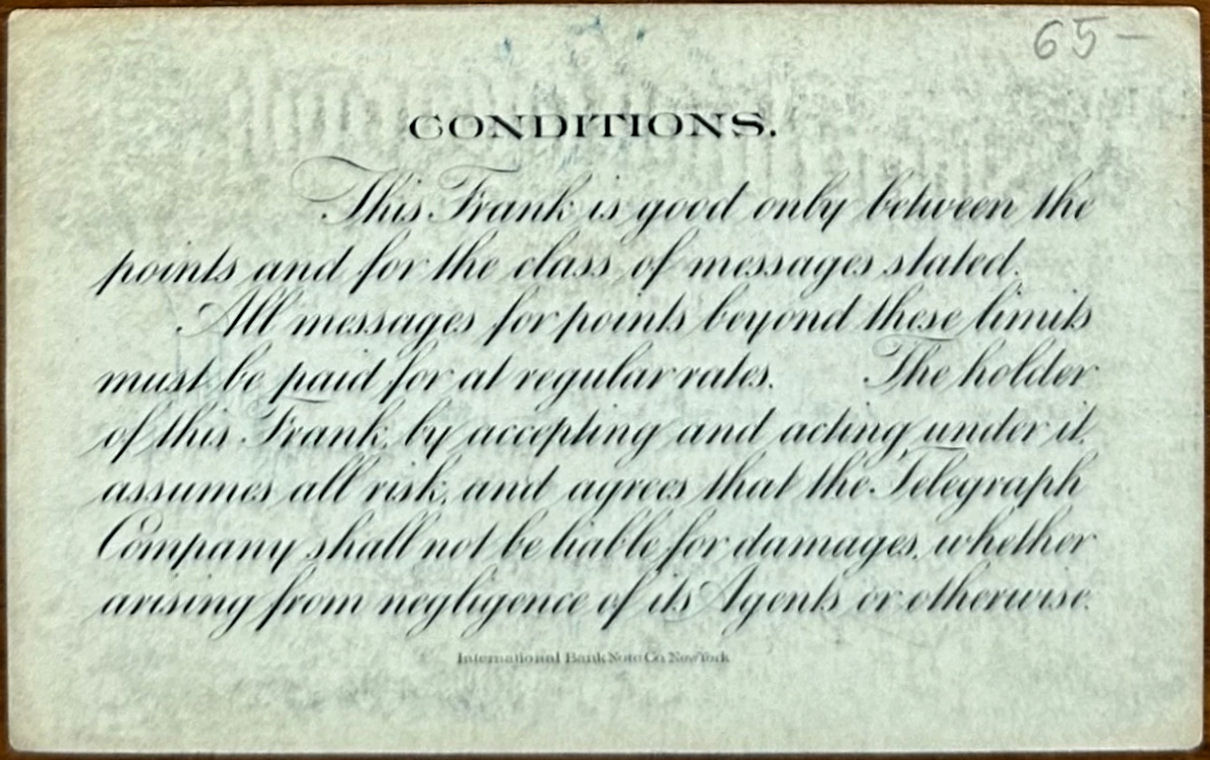 65-
CONDITIONS.
This Frank is good only between the
points and for the class of messages stated.
All messages for points beyond these limits
must be paid for at regular rates. The holder
of this Frank, by accepting and acting under it,
assumes all risk, and agrees that the Telegraph
Company shall not be liable for damages, whether
arising from negligence of its Agents or otherwise.
International Bank Note Co. New York